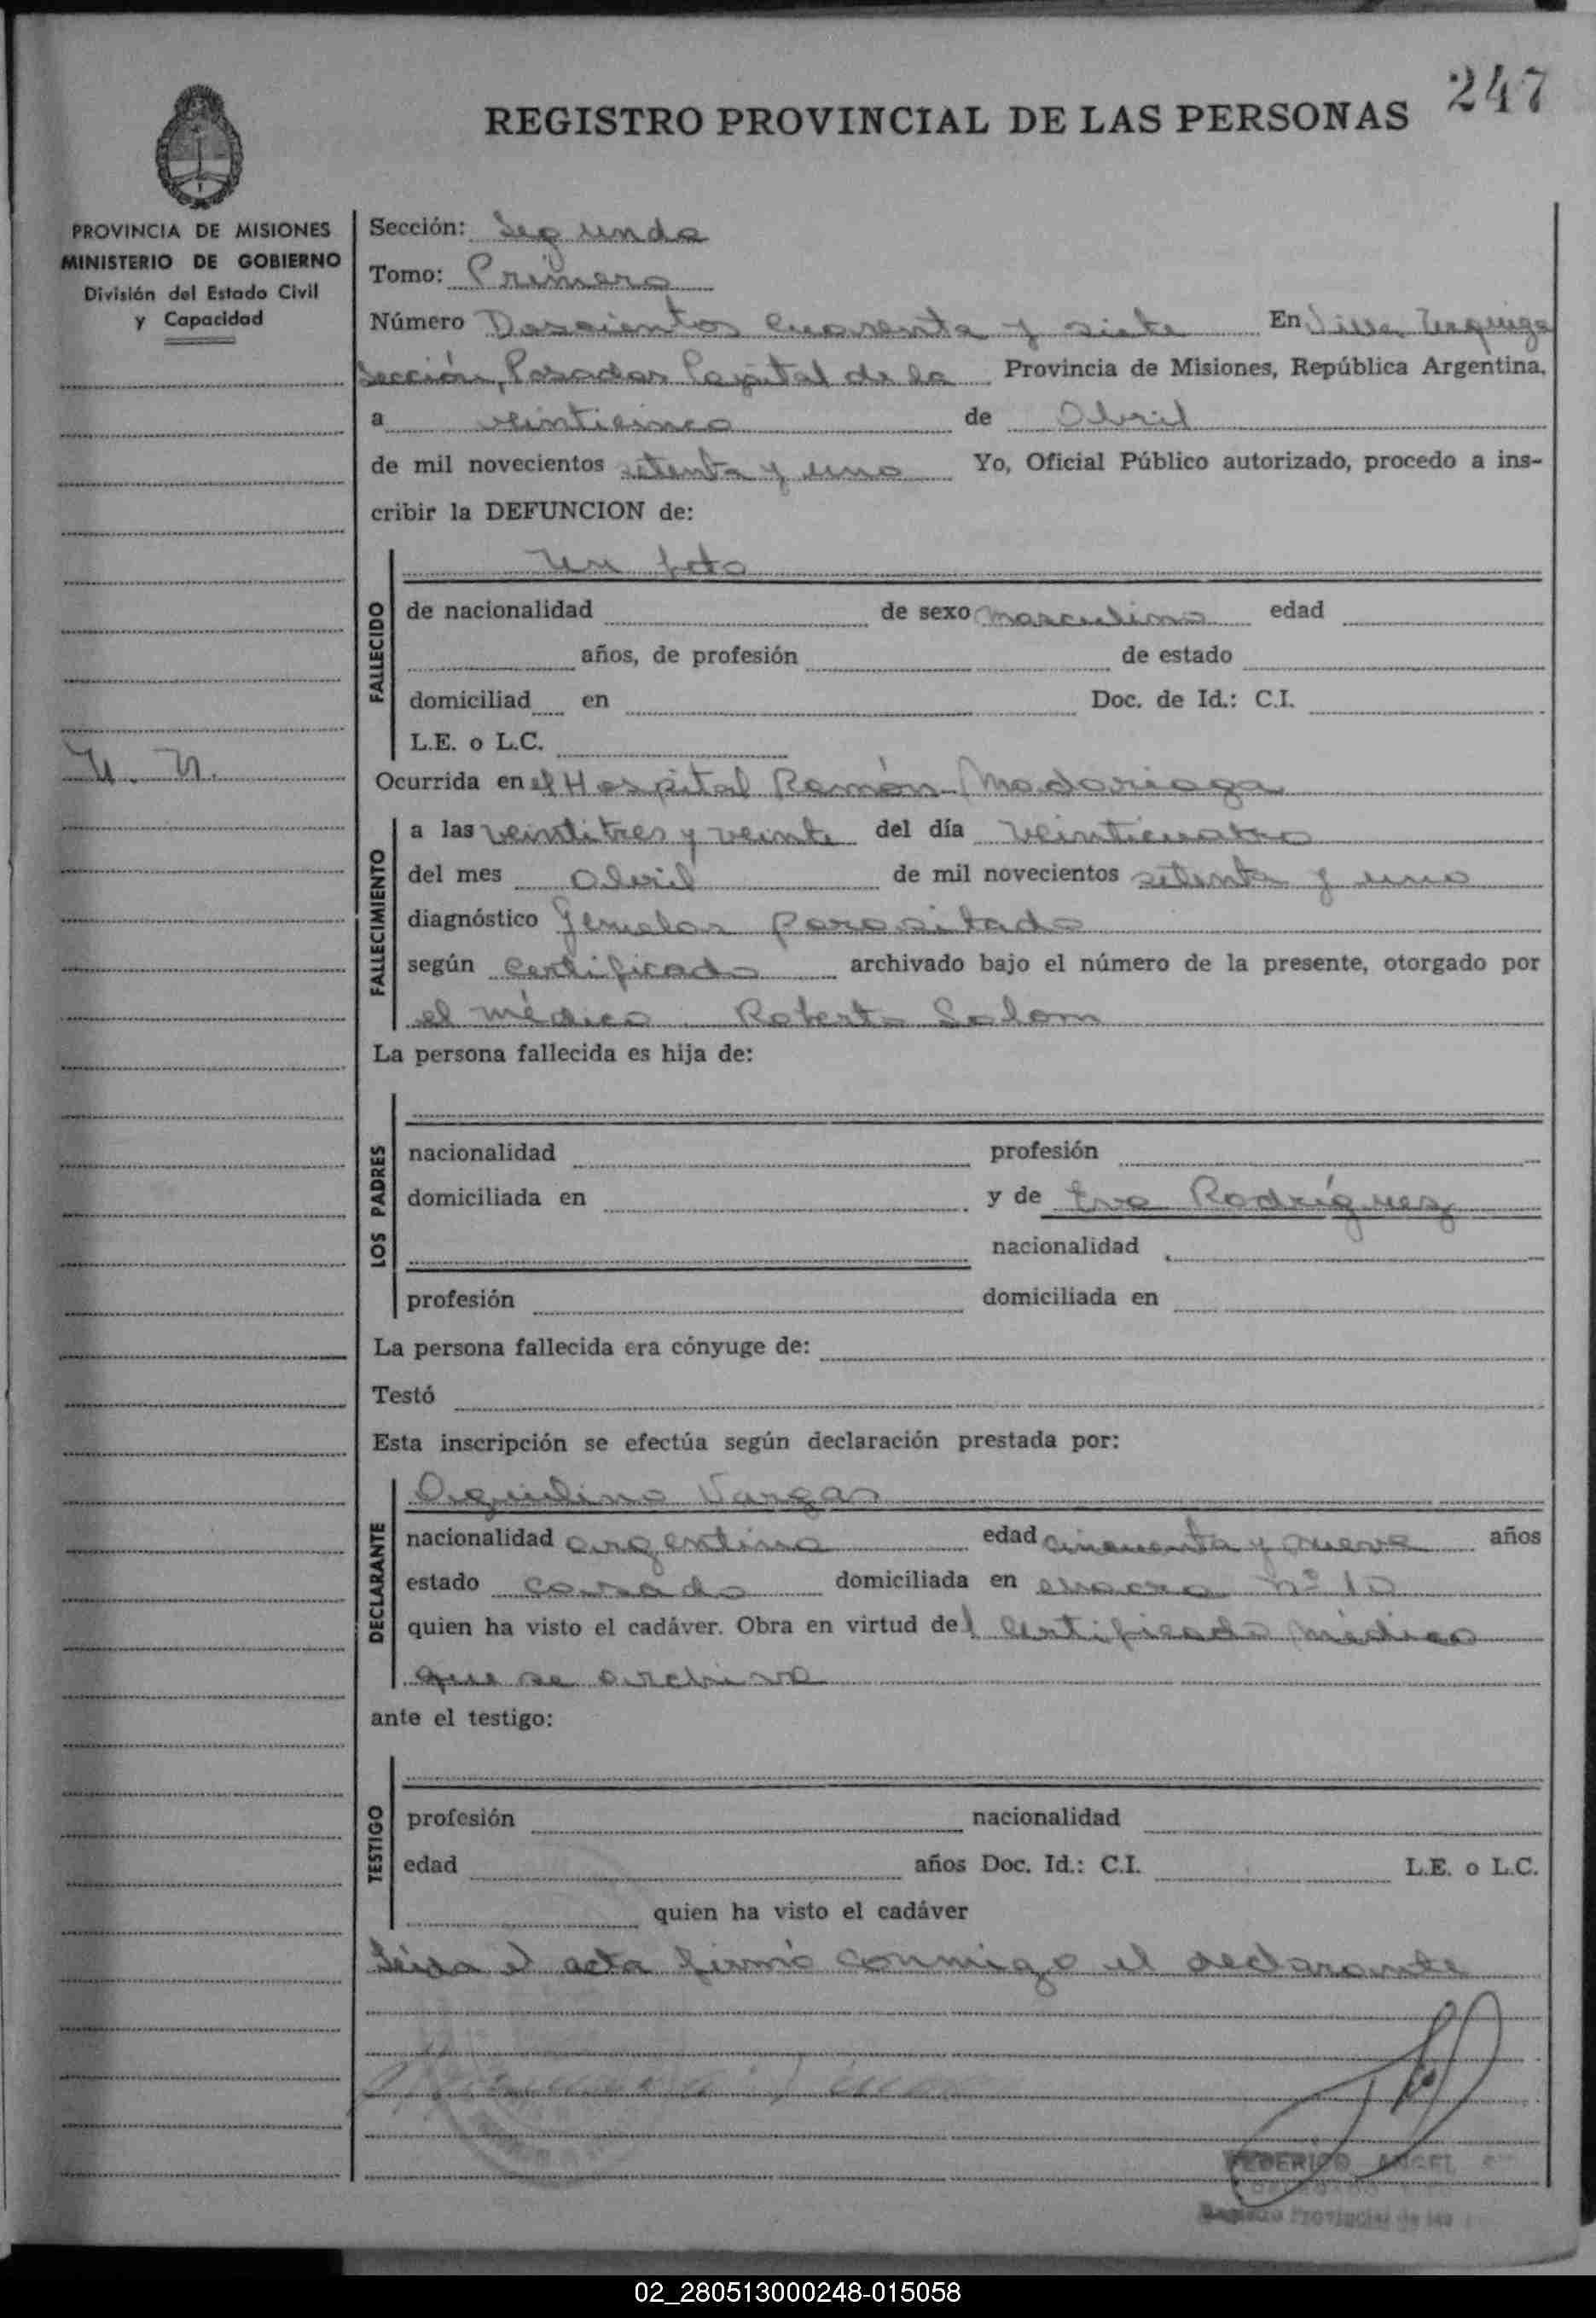 247
REGISTRO PROVINCIAL DE LAS PERSONAS
PROVINCIA DE MISIONES
MINISTERIO DE GOBIERNO
División del Estado Civil
y Capacidad
Sección: Segunda
Tomo: Primero
Número Doscientos cuarenta y siete En Villa Urquiza
Sección, Posadas Capital de la Provincia de Misiones, República Argentina,
a veinticinco de Abril
de mil novecientos setenta y uno Yo, Oficial Público autorizado, procedo a ins-
cribir la DEFUNCION de:
Un feto
FALLECIDO
de nacionalidad de sexo masculino edad
años, de profesión de estado
domiciliad en Doc. de Id.: C.I.
L.E. o L.C.
N. N.
Ocurrida en el Hospital Ramón Madariaga
FALLECIMIENTO
a las veintitres y veinte del día veinticuatro
del mes Abril de mil novecientos setenta y uno
diagnóstico Gemelar parasitado
según certificado archivado bajo el número de la presente, otorgado por
el médico Roberto Salom
La persona fallecida es hija de:
LOS PADRES
nacionalidad profesión
domiciliada en y de Eva Rodríguez
nacionalidad
profesión domiciliada en
La persona fallecida era cónyuge de:
Testó
Esta inscripción se efectúa según declaración prestada por:
DECLARANTE
Aquilino Vargas
nacionalidad argentino edad cincuenta y nueve años
estado casado domiciliada en chacra nº 10
quien ha visto el cadáver. Obra en virtud del certificado médico
que se archiva
ante el testigo:
TESTIGO
profesión nacionalidad
edad años Doc. Id.: C.I. L.E. o L.C.
quien ha visto el cadáver
Leida el acta firmó conmigo el declarante
FEDERICO ANGEL
Registro Provincial de las
02_280513000248-015058